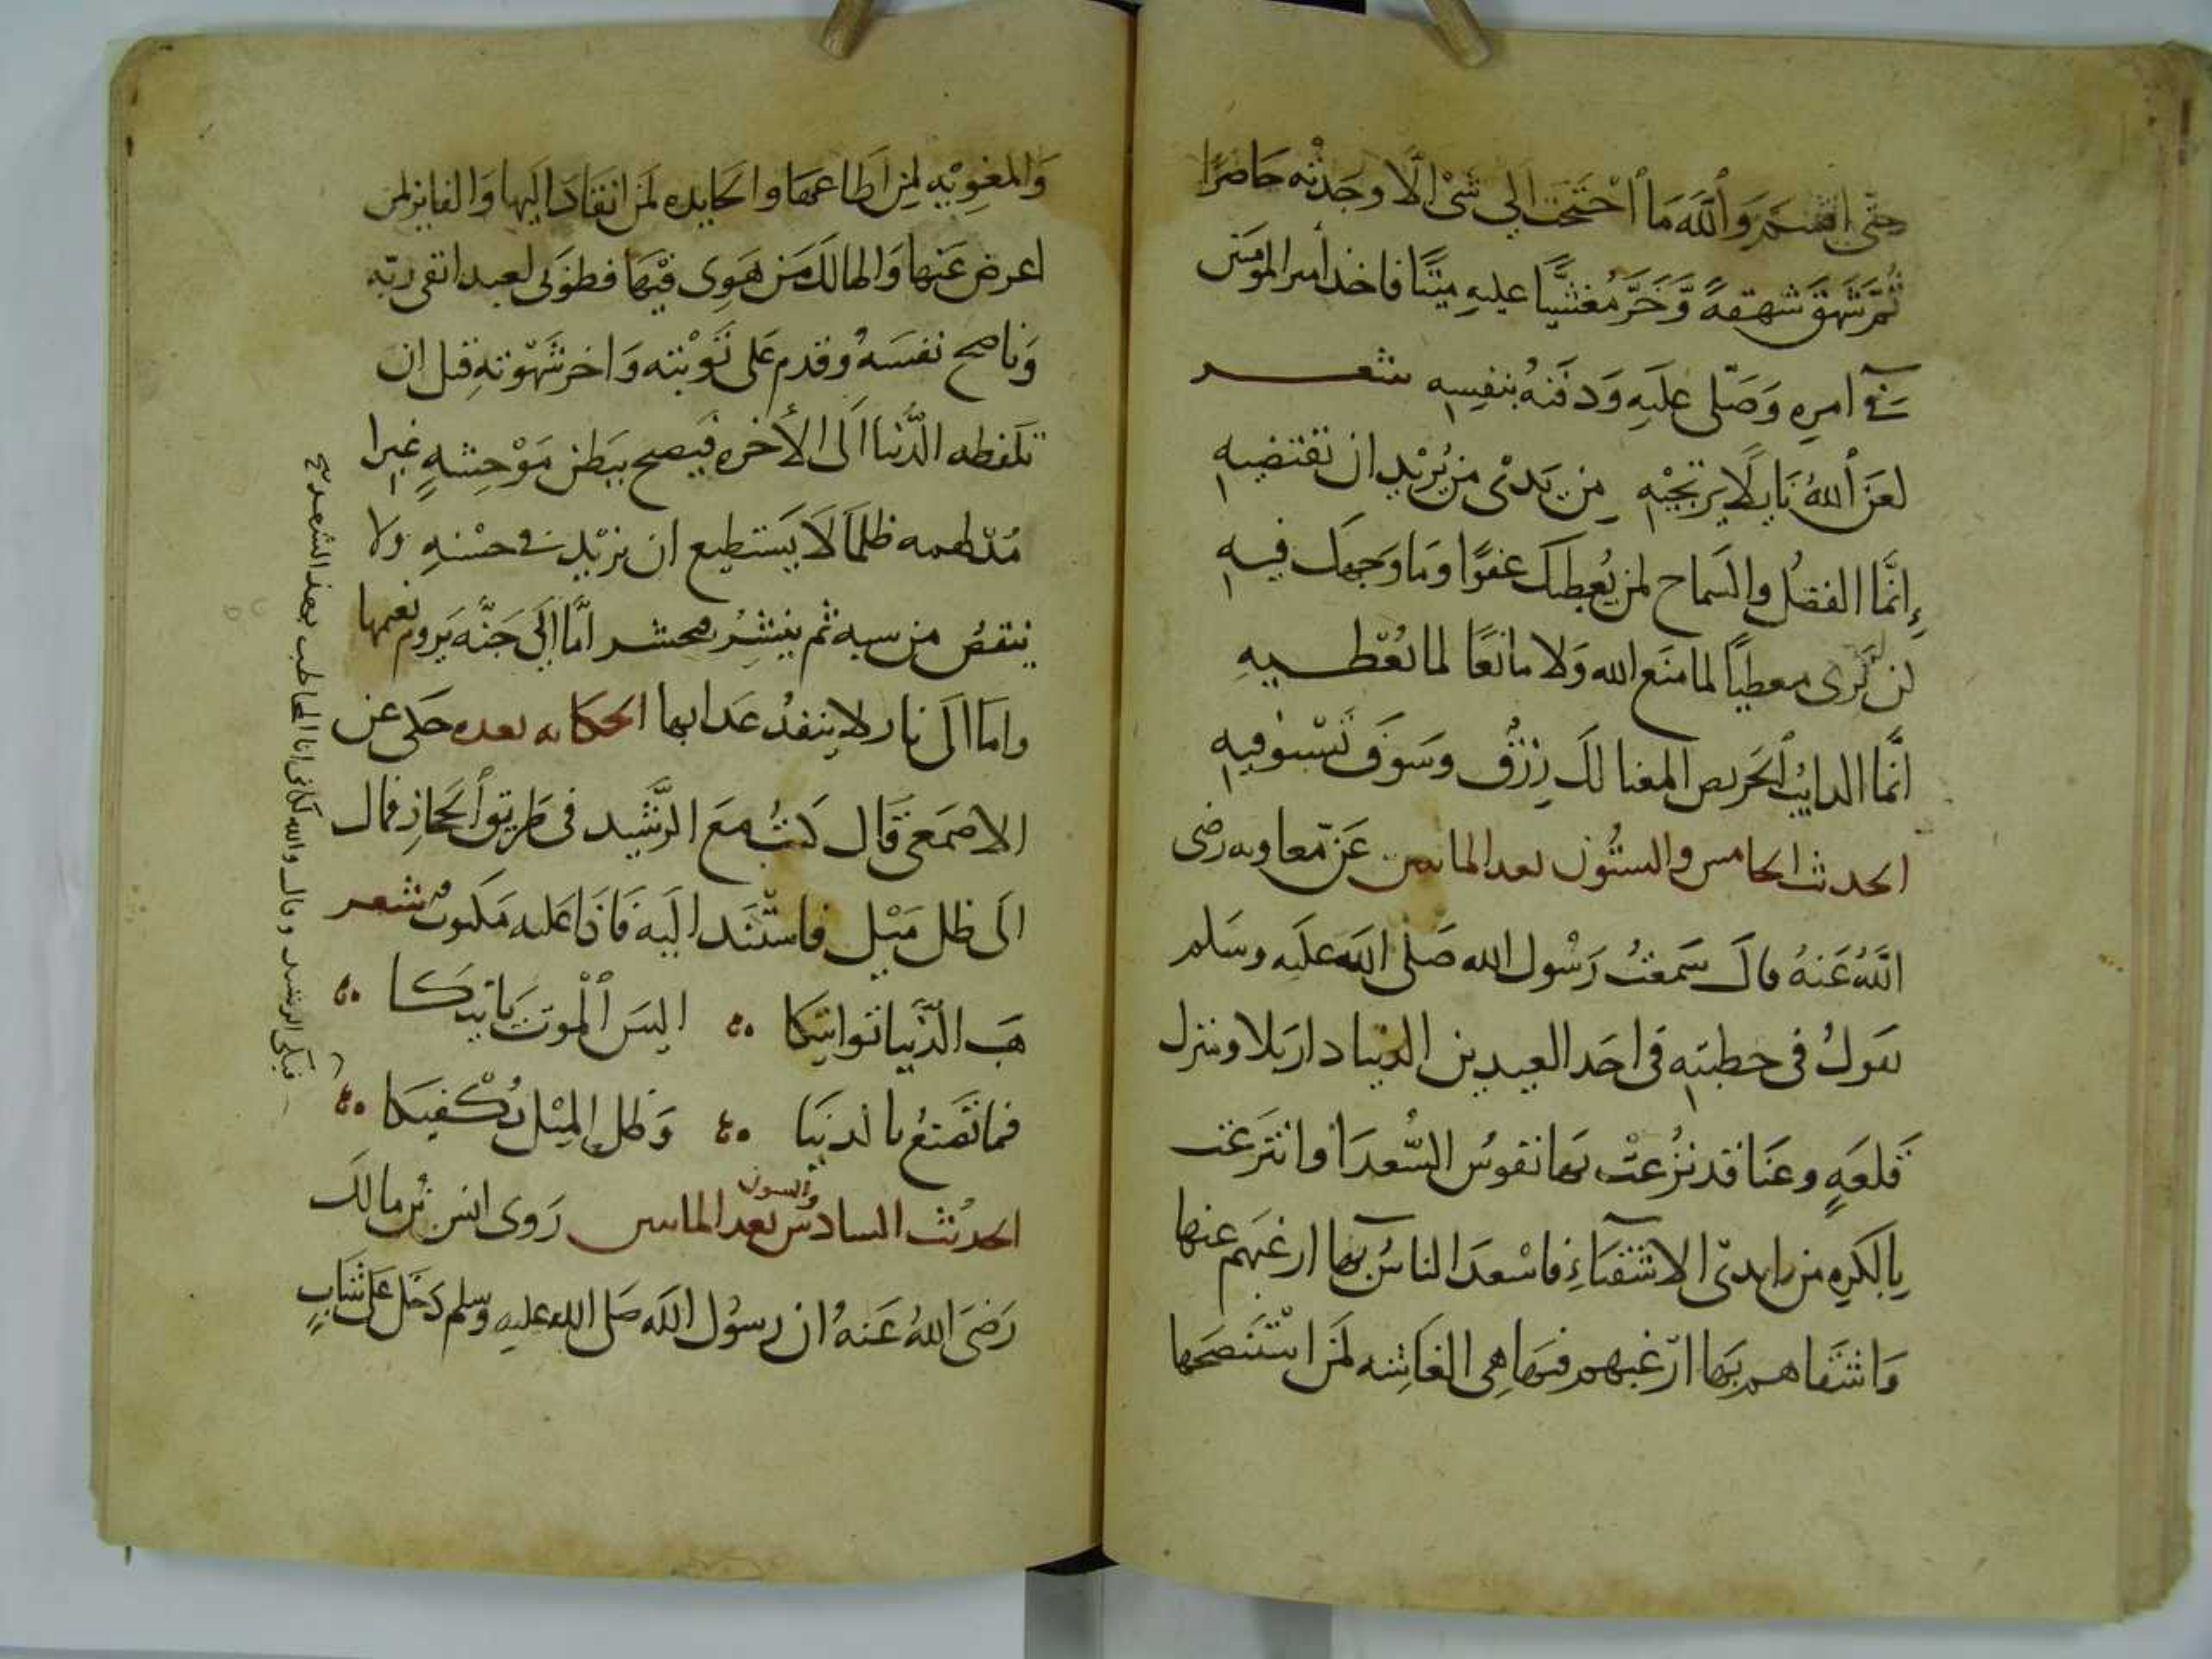 حتى اقسم وَٱللَّه مَا ٱحْتَجْت الي شىْ الّا وجَدْته حَاضرًا
ثُمَّ شَهَق شهقهً وَّخَرَّ مُغشيًّا عليهِ ميّتًا فاخذ أمير المومنين
في امرِه وَصَلّى علَيهِ وَدفنهُ بنفسِهِ شعر
لعَن ٱللهُ نَايلًا يرتجيْهِ مِن يَدىْ من يُرْيد ان تقتضيهِ
إنَّما الفضلُ والسَماح لمن يُعطيك عفوًا وَما وَجهَك فيه
لن تَرى معطيًا لما مَنَع الله وَلا مانعًا لما يُعْطيهِ
انَّما الدايبُ ٱلحَريص المعنا لكَ رِزْقٌ وسَوفَ تَسْتوفيهِ
الحديث الخامس والستُّون بعد الماتين عَنْ مّعاويه رضى
اللهُ عَنهُ قالَ سَمعتُ رَسُول الله صَلى الله علَيه وسَلم
يقولُ فى خطبتهِ فى احَد العيدين الدنيا دار بَلا ومنزل
قَلعَهٍ وعَنَا قد نزُعتْ عَنها نفوسُ السُّعدَا وانتزعَت
بِالكَرهِ من ايدىْ الاشقيَاءِ فاسْعدَ الناسُ بها ارغبَهم عنها
وَاشقَاهم بَها ارْغبهم فيهَا هى الغَاشه لمَن استنصَحها
وَالمغوِيْه لمن اطَاعهَا والخايده لمَن انقَادَ اليها وَالفايز لمن
اعرض عَنها وَالهالك مَن هَوى فيْهَا فطوْبَى لعبد اتقى ربّه
وَناصح نفسَهُ وقدم عَلى تَوْبته وَاخر شَهْوَتهِ قبل ان
تلفظه الدُّنيا الَى الأخره فيَصبح ببَطن مَوْحِشهٍ غبرا
مُدْلهمه ظلمَا لَا يَستطيع ان يزيْد في حسْنهِ ولا
ينقصُ من سيه ثم ينشَرُ فيحشر امَّا الَي جَنَّه يَدوم نعيمها
وامَا الَى نار لا ينفدُ عَذابها الحكايه بعده حَكى عن
الاصمَعى قَال كنتُ مَعَ الرَّشيد فى طريق ٱلحَجازِ فمال
الَى ظل مَيْل فاستَند الَيه فَاذا عَليه مَكتوبٌ شعر
هَب الدُّنيا تواتيكا اليسَ ٱلموت يَاتيكا
فما تَصْنعُ بالدنيَا وَظل المِيْل يَكْفيكَا
الحديْث السادسُ والستون بعد الماتين رَوى انس بْن مالك
رَضىَ اللهُ عَنهُ ان رسُول الله صَلى الله عليهِ وسلم دَخل عَلى شَابٍ
فبكى الرشيد وقال والله كانى انا المخاطب بهذا الشعر صح